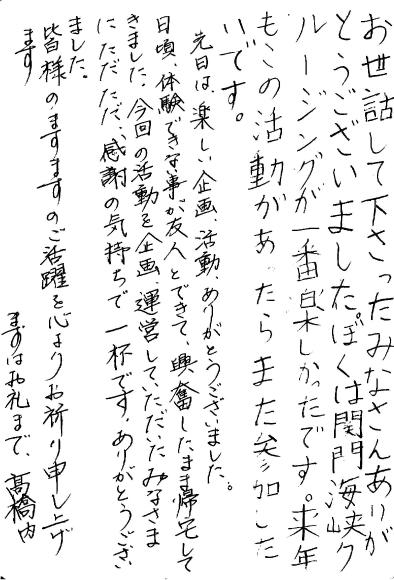 お世話して下さったみなさんありが
とうございました。ぼくは関門海峡ク
ルージングが一番楽しかったです。来年
もこの活動があったらまた参加した
いです。
先日は、楽しい企画、活動、ありがとうございました。
日頃、体験できない事が友人とできて、興奮したまま帰宅して
きました。今回の活動を企画、運営して、いただいたみなさま
にただただ、感謝の気持ちで一杯です。ありがとうござい
ました。
皆様のますますのご活躍を心よりお祈り申し上げ
ます
まずはお礼まで、髙橋内